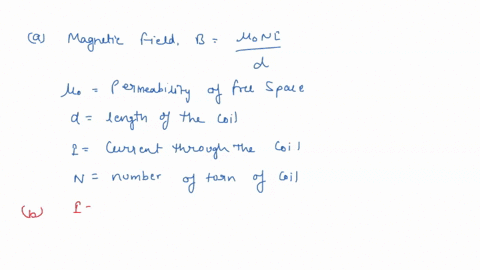 (a) Magnetic field, B = μ₀NI / d
μ₀ = Permeability of free space
d = length of the coil
I = Current through the coil
N = number of torn of coil
(b) I -